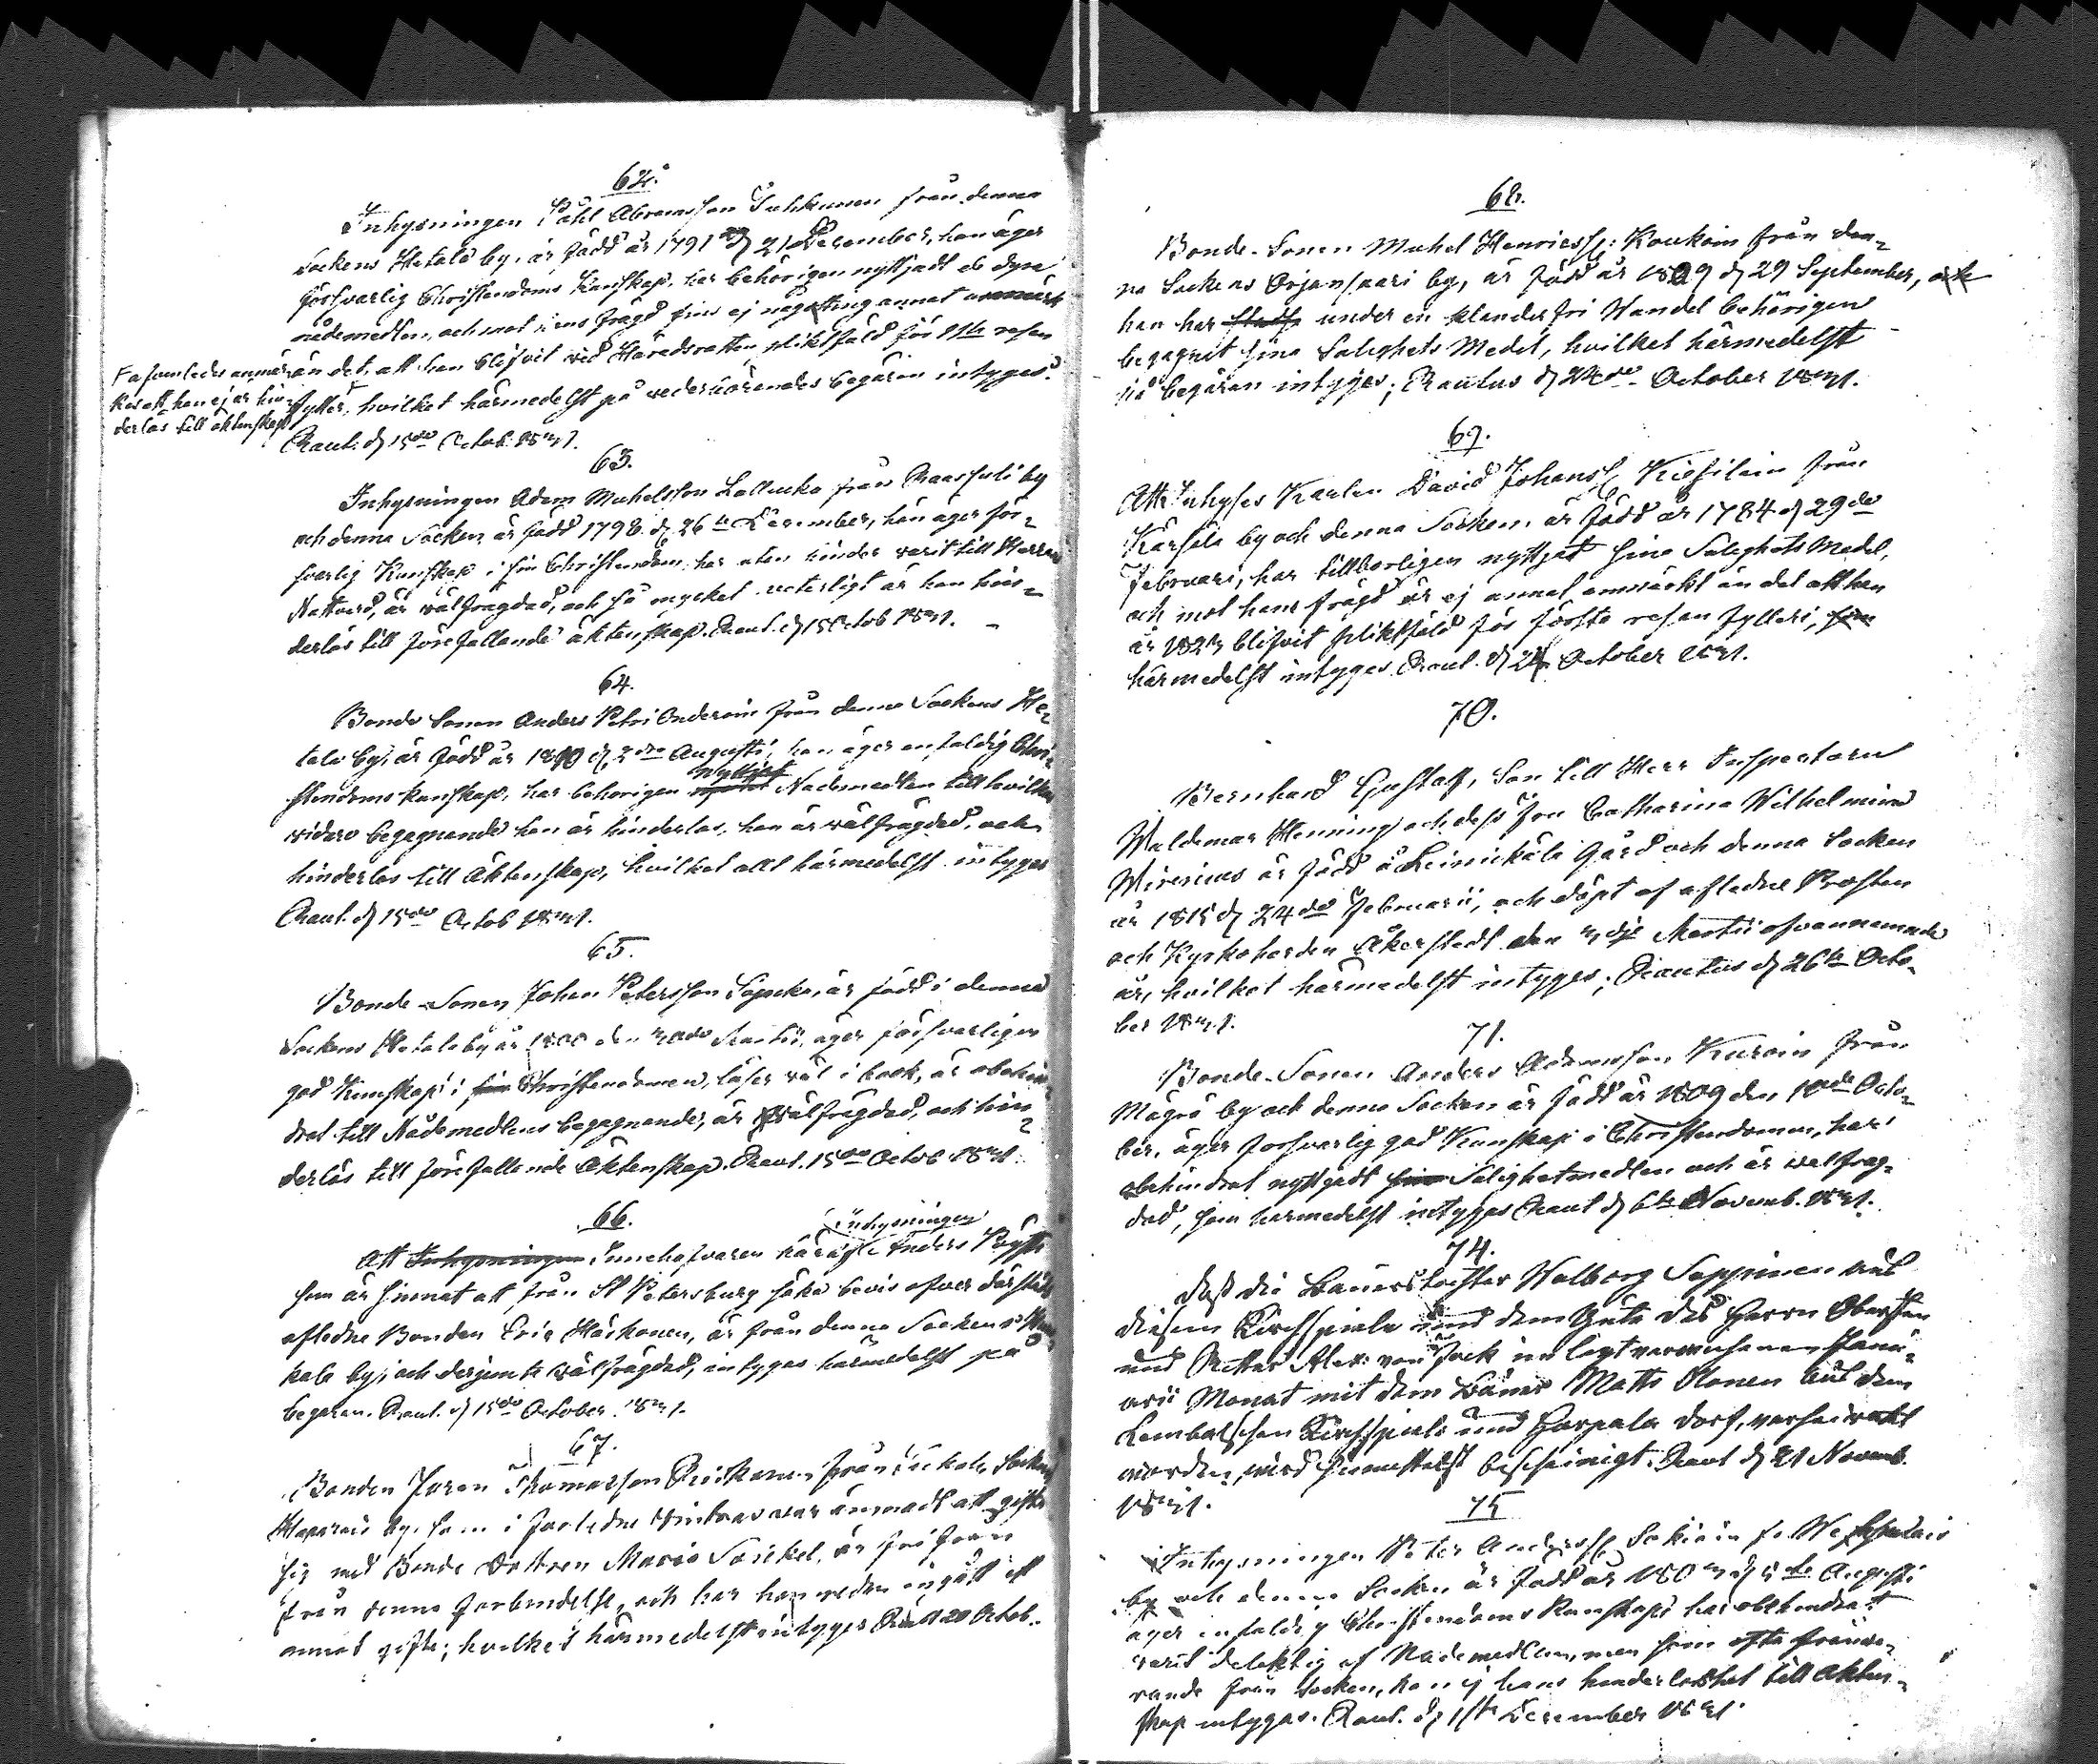 62.
Inhysningen Påhl Abramsson Suhkunen från denna
Sockens Hetala by, är född år 1791 d. 21 December, han äger
försvarlig Christendoms Kunskap, har behörigen nyttjadt de dyra
nådemedlen, och mot hans frägd fins ej någotting annat anmärkt
än det, att han blifvit vid Häradsrätten pliktfäld för 1sta resan
fylleri, hvilket härmedelst på vederbörandes begäran intygas.
Raut. d. 15de Octob. 1831.
Fasamledes anmär-
kes att han ej är hin-
derlös till äktenskap
63.
Inhysningen Adam Michelsson Lallucka från Raasuli by
och denna Socken, är född 1798 d. 26te December, han äger för-
svarlig Kunskap i sin Christendom, har utan hinder varit till Herrans
Nattvard, är välfrägdad, och så mycket veterligt är han hin-
derlös till förefallande äktenskap. Raut. d. 15 Octob 1831.
64.
Bonde Sonen Anders Petri Onderoin från denna Sockens He-
tala by, är född år 1810 d. 2dra Augusti, han äger enfaldig Chri-
stendoms kunskap, har behörigen nyttjat Nådemedlen till hvilkas
vidare begagnande han är hinderlös, han är välfrägdad, och
hinderlös till Äktenskap, hvilket allt härmedelst intygas
Raut. d. 15de Octob 1831.
65.
Bonde-Sonen Johan Petersson Säpickä, är född i denna
Sockens Hetala by år 1800 den 30de Martii, äger försvarligen
god Kunskap i sin Christendomen, läser väl i bock, är obehin-
drat till Nådemedlens begagnande, är välfrägdad, och hin-
derlös till förefallande Äktenskap. Raut. 15de Octob 1831.
66.
Inhysningen
Att Inhysningen Innehafvaren häraf Anders Pöyhö
som är sinnat att från St Petersburg söka bevis öfver därstädes
aflidne Bonden Eric Häckonen, är från denna Sockens
kala by, och desjemte välfrägdad, intygas härmedelst på
begäran. Raut. d. 15de October. 1831.
67.
Bonden Jöran Thomasson Riickonen från
Haparais by, som i forledne Vintras var ämnadt att gifta
sig med Bonde Dottren Maria Sarickel, är fri från
från denna forbindelse, och har han redan ingått ett
annat gifte; hvilket härmedelst intygas Raut 20 Octob.
68.
Bonde-Sonen Michel Henricss: Koukoin från den-
na Sockens Orjansaari by, är född år 1809 d. 29 September, och
han har städse under en klanderfri Vandel behörigen
begagnit sina Salighets Medel, hvilket härmedelst
på begäran intyges; Rautus d. 22de October 1831.
69.
Att Inhyses Karlen David Johanss Kiesiläin från
Kärsälä by och denna Socken, är född år 1784 d. 29de
Februari, har tillbörligen nyttjat sina Salighets Medel,
och mot hans frägd är ej annat anmärkt än det att han
år 1823 blifvit pliktfäld för första resan fylleri, som
härmedelst intygas Raut. d. 24 October 1831.
70.
Bernhard Gustaf, Son till Herr Inspectorn
Waldemar Henning och dess fru Catharina Wilhelmina
Wirenius är född å Leinickälä Gård och denna Socken
år 1815 d. 24de Februarii, och döpt af aflidne Prosten
och Kyrkoherden Åkerstedt den 3dje Martii ofvannemnde
år, hvilket härmedelst intyges; Rautus d. 26te Octo-
ber 1831.
71.
Bonde-Sonen Anders Adamsson Kuroin från
Mägrä by och denna Socken är född år 1809 den 10de Octo-
ber, äger försvarlig god Kunskap i Christendomen, har
obehindrat nyttjadt sina Salighetmedlen och är välfräg-
dad, som härmedelst intygas Raut d. 6te Novemb. 1831.
74.
Daß die Bauerstochter Walborg Seppinen aus
diesem Kirchspiele und dem Gute des Herrn Obersten
und Ritter Alex: von Fock im leztverwichenen Janu-
arii Monat mit dem Bauer Matts Olonen aus dem
Lembalschen Kirchspiele und Haapala Dorf, verheirathet
worden, wird hiemittelst bescheinigt. Raut d. 21 Novemb.
1831.
75
Inhysningen Peter Anderss Sokiain fr.
by och denna Socken är född år 1803 d. 5te Augusti
äger enfaldig Christendoms Kunskap, har obehindrat
varit delaktig af Nådemedlen, men som ofta frånva-
rande från Socken, kan ej hans hinderlöshet till Äkten-
skap intygas. Raut. d. 1sta December 1831.